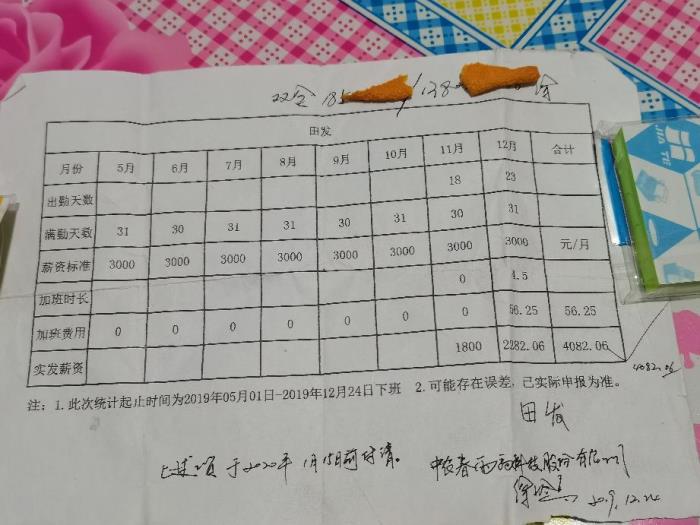 田发
月份 5月 6月 7月 8月 9月 10月 11月 12月 合计
出勤天数 18 23
满勤天数 31 30 31 31 30 31 30 31
薪资标准 3000 3000 3000 3000 3000 3000 3000 3000 元/月
加班时长 0 4.5
加班费用 0 0 0 0 0 0 0 56.25 56.25
实发薪资 1800 2282.06 4082.06
4082.06
注：1.此次统计起止时间为2019年05月01日-2019年12月24日下班 2.可能存在误差，已实际申报为准。
田发
上述项于2020年1月15日前付清。
科技股份有限公司
2019.12.24